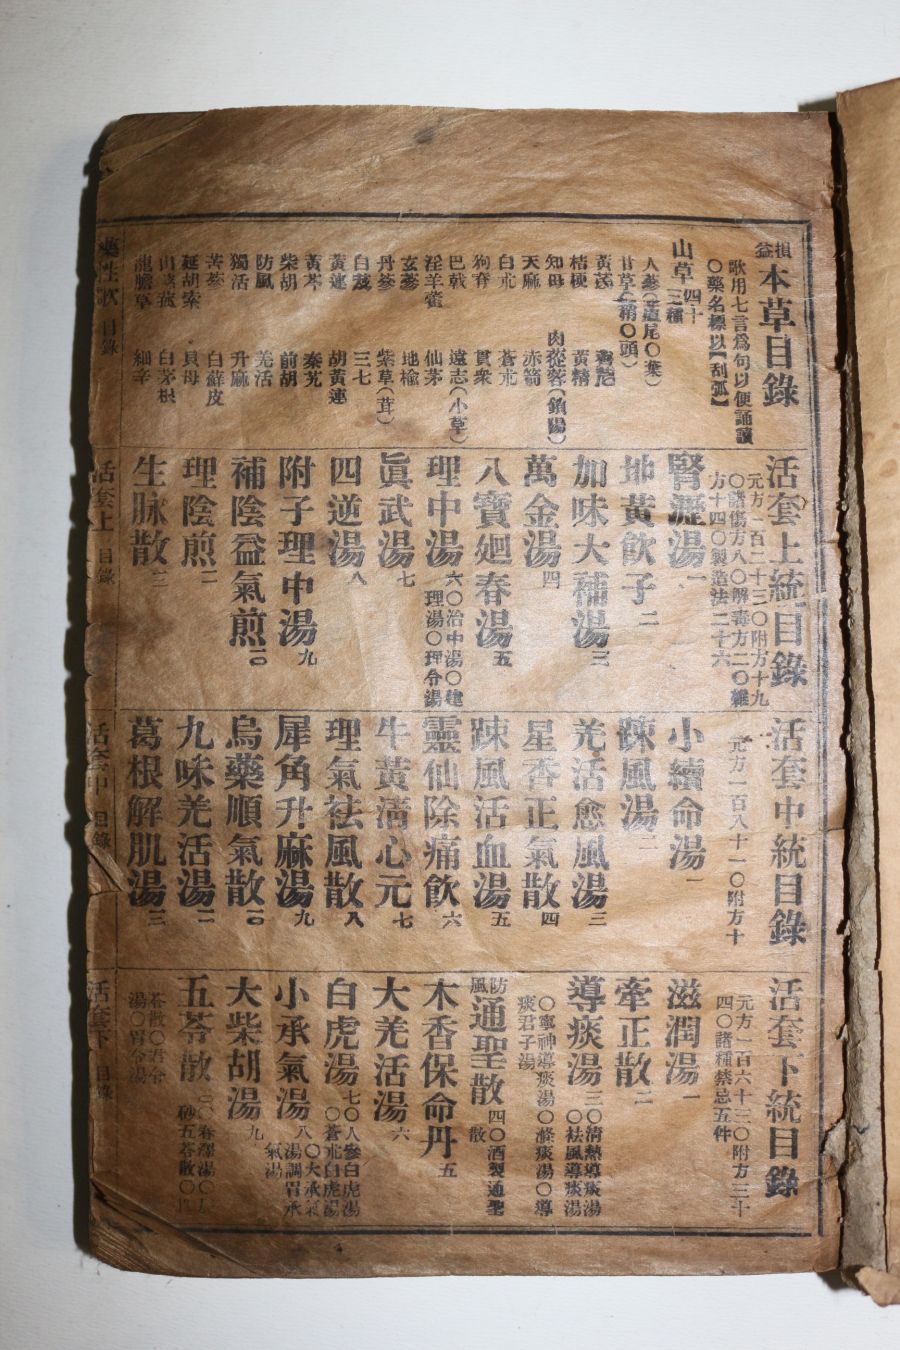 損益本草目錄
歌用七言爲句以便誦讀
〇藥名標以【刮弧】
山草四十三種
人參(蘆尾〇葉)
甘草(稍〇頭)
黃芪
桔梗 黃精
知母 肉從蓉(鎖陽)
天麻 赤箭
白朮 蒼朮
狗脊 貫衆
巴戟 遠志(小草)
淫羊藿 仙茅
玄蔘 地榆
丹參 紫草(茸)
白芨 三七
黃連 胡黃連
黃芩 秦艽
柴胡 前胡
防風 羌活
獨活 升麻
苦蔘 白蘚皮
延胡索 貝母
山茨菰 白茅根
龍膽草 細辛
藥性歌 目錄
活套上統目錄
元方一百二十三〇附方十九
〇諸傷方八〇解毒方二〇雜
方十四〇製造法二十六
腎瀝湯一
地黃飮子二
加味大補湯三
萬金湯四
八寶廻春湯五
理中湯六〇治中湯〇建理湯〇理令湯
眞武湯七
四逆湯八
附子理中湯九
補陰益氣煎一〇
理陰煎一一
生脉散一二
活套上 目錄
活套中統目錄
元方一百八十一〇附方十
小續命湯一
疎風湯二
羌活愈風湯三
星香正氣散四
疎風活血湯五
靈仙除痛飮六
牛黃淸心元七
理氣祛風散八
犀角升麻湯九
烏藥順氣散一〇
九味羌活湯一一
葛根解肌湯一二
活套中 目錄
活套下統目錄
元方一百六十三〇附方三十
四〇諸種禁忌五件
滋潤湯一
牽正散二
導痰湯三〇淸熱導痰湯〇祛風導痰湯
〇寧神導痰湯〇滌痰湯〇導
痰君子湯
防風通聖散四〇酒製通聖散
木香保命丹五
大羌活湯六
白虎湯七〇人參白虎湯〇蒼朮白虎湯
小承氣湯八〇大承氣湯調胃承氣湯
大柴胡湯九
五苓散一〇〇春澤湯〇
砂五苓散〇
苓散〇
湯〇胃令湯
活套下 目錄